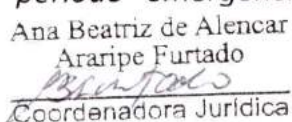 Ana Beatriz de Alencar
Araripe Furtado
Coordenadora Jurídica